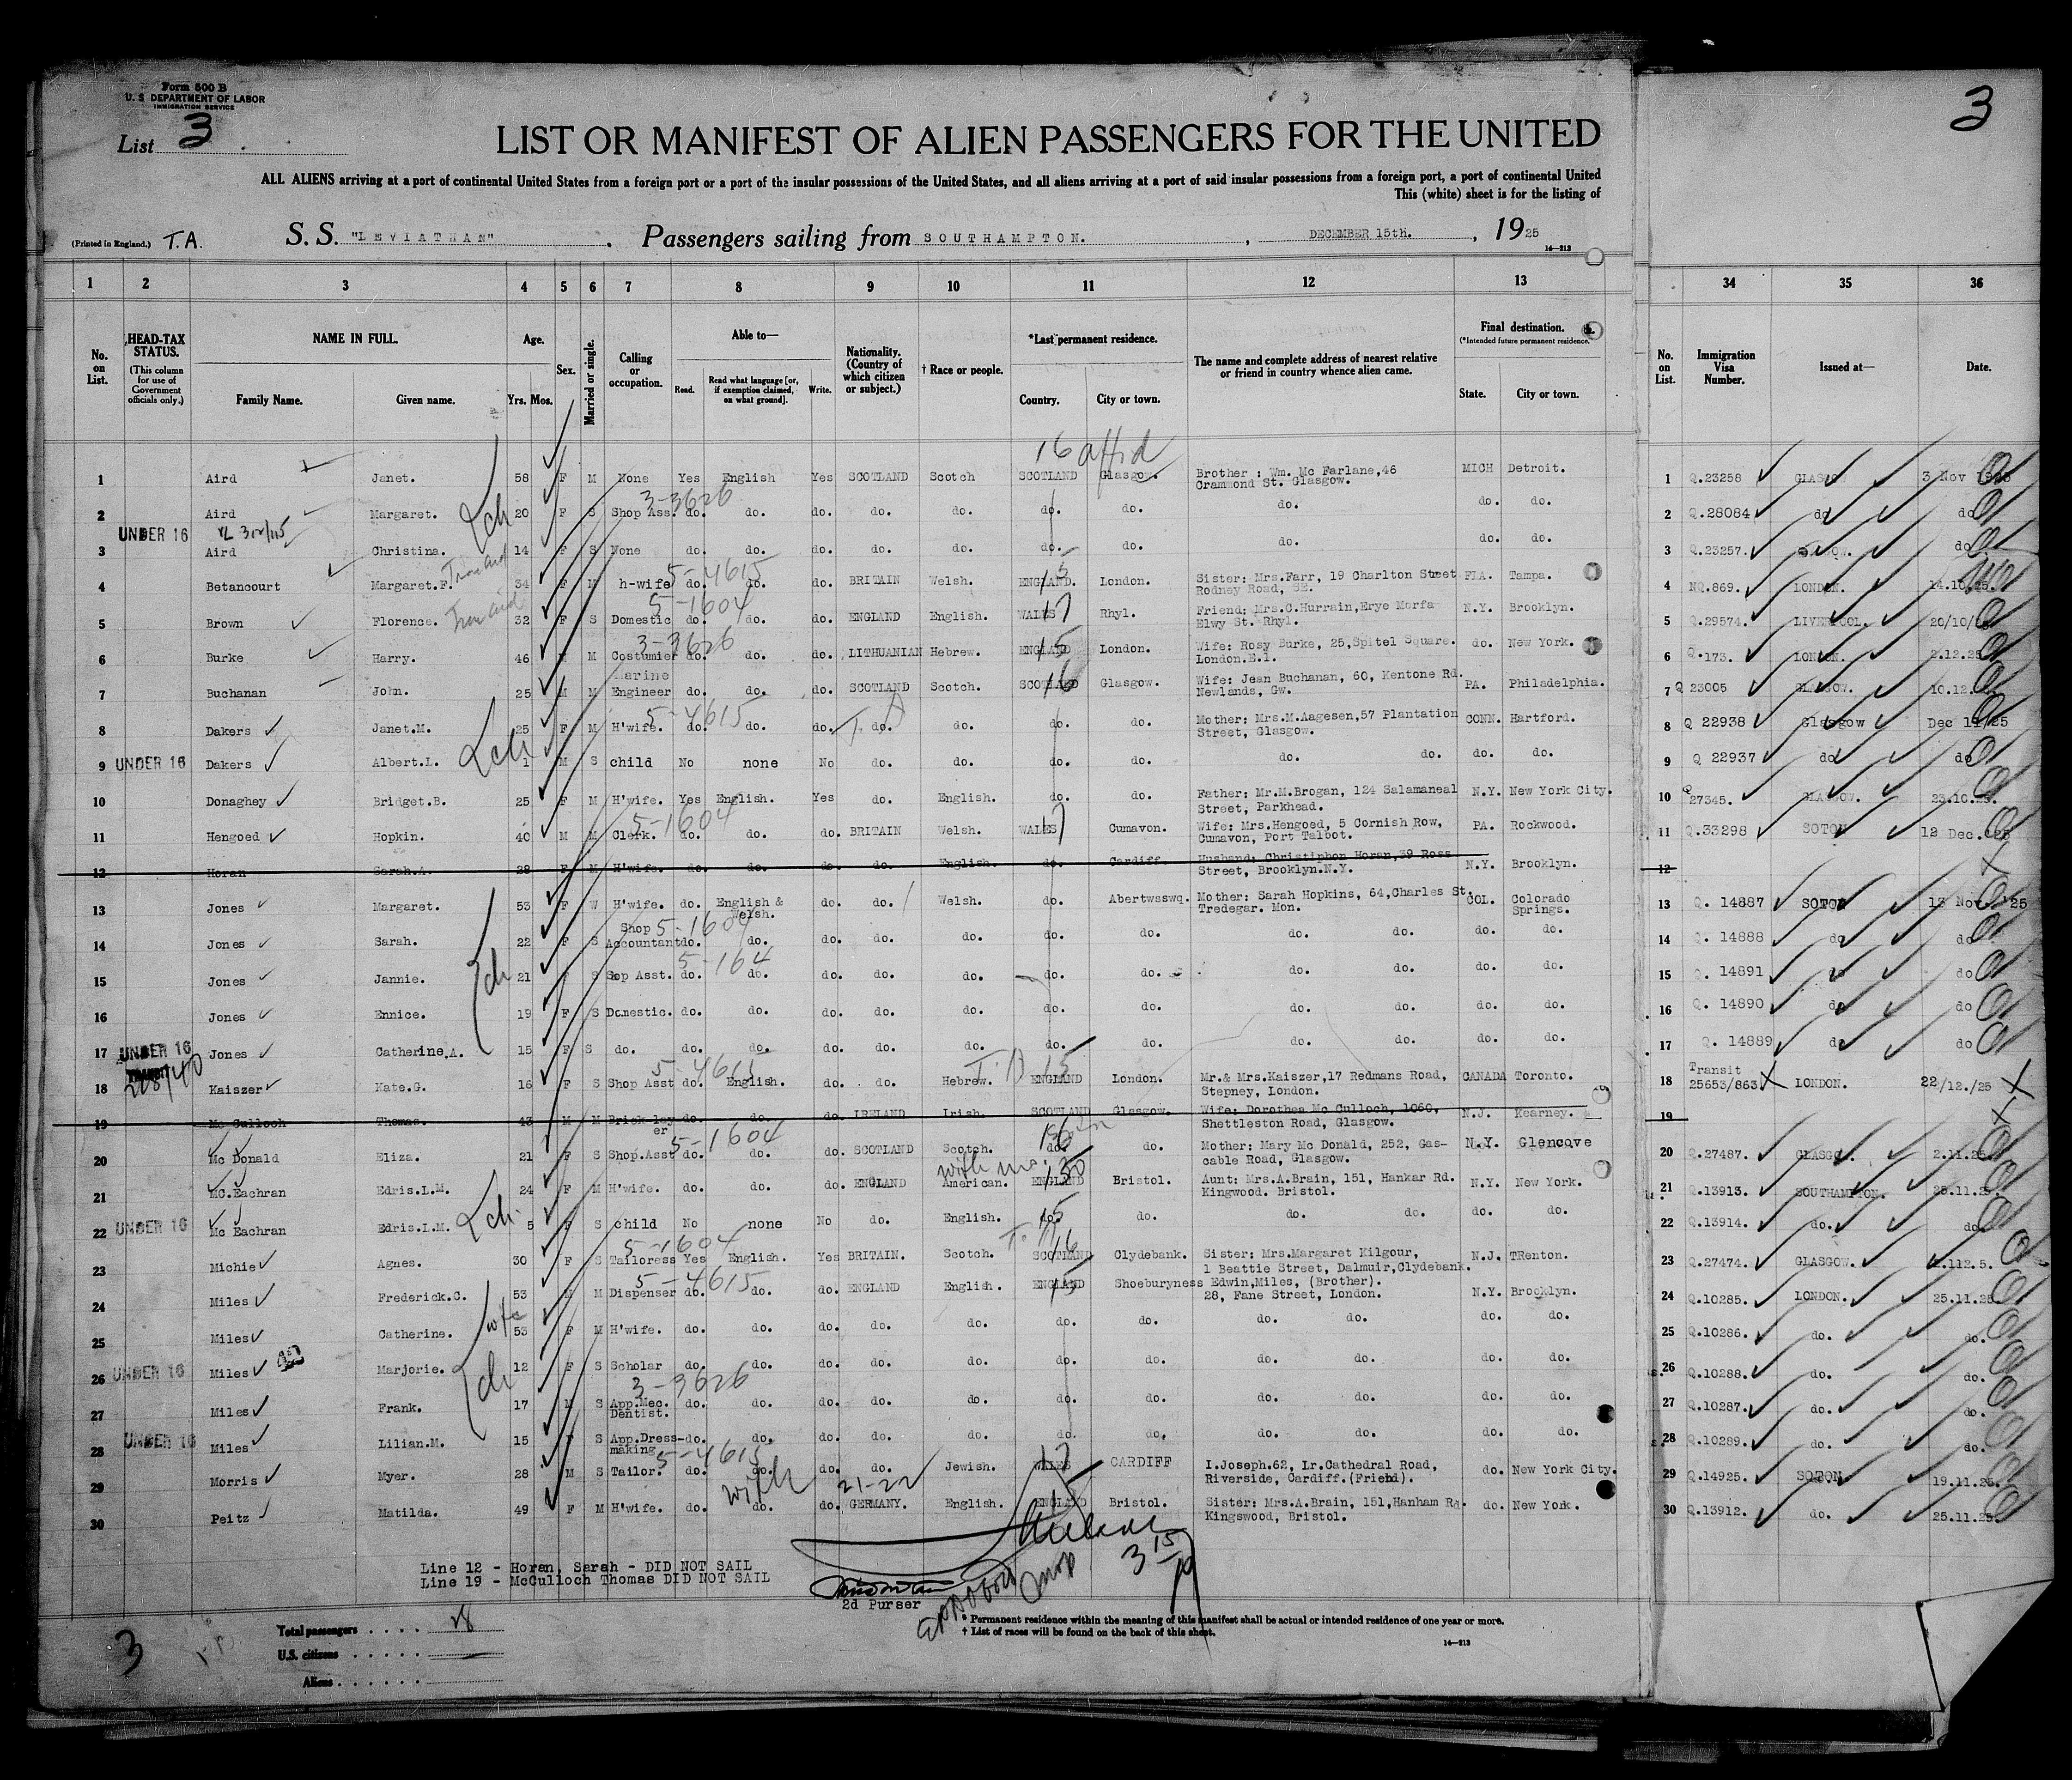 Form 500 B
U. S DEPARTMENT OF LABOR
IMMIGRATION SERVICE
List 3
3
LIST OR MANIFEST OF ALIEN PASSENGERS FOR THE UNITED
ALL ALIENS arriving at a port of continental United States from a foreign port or a port of the insular possessions of the United States, and all aliens arriving at a port of said insular possessions from a foreign port, a port of continental United
This (white) sheet is for the listing of
(Printed in England.) T.A. S. S. "LEVIATHAN" . Passengers sailing from SOUTHAMPTON. , DECEMBER 15th. , 1925
16—213
1 2 3 4 5 6 7 8 9 10 11 12 13 34 35 36
No. on List. HEAD-TAX STATUS. (This column for use of Government officials only.) NAME IN FULL. Family Name. Given name. Age. Yrs. Mos. Sex. Married or single. Calling or occupation. Able to— Read. Read what language [or, if exemption claimed, on what ground]. Write. Nationality. (Country of which citizen or subject.) † Race or people. *Last permanent residence. Country. City or town. The name and complete address of nearest relative or friend in country whence alien came. Final destination. (*Intended future permanent residence.) State. City or town. No. on List. Immigration Visa Number. Issued at— Date.
16 affid
1 Aird Janet. 58 F M None Yes English Yes SCOTLAND Scotch SCOTLAND Glasgow. Brother : Wm. Mc Farlane,46 Crammond St. Glasgow. MICH Detroit. 1 Q.23258 GLASGOW 3 Nov 1925
3-3626
2 Aird Margaret. 20 F S Shop Ass. do. do. do. do. do. do. do. do. do. do. 2 Q.28084 do do
UNDER 16
3 Aird Christina. 14 F S None do. do. do. do. do. do. do. do. do. do. 3 Q.23257. GLASGOW. do
5-4615
4 Betancourt Margaret.F. 34 F M h-wife do. do. do. BRITAIN Welsh. ENGLAND. London. Sister: Mrs.Farr, 19 Charlton Street Rodney Road, SE. FLA. Tampa. 4 NQ.869. LONDON. 14.10.25.
5-1604
5 Brown Florence. 32 F S Domestic do. do. do. ENGLAND English. WALES Rhyl. Friend: Mrs.C.Hurrain,Erye Morfa Elwy St. Rhyl. N.Y. Brooklyn. 5 Q.29574. LIVERPOOL. 20/10/25
3-3626
6 Burke Harry. 46 M M Costumier do. do. do. LITHUANIAN Hebrew. ENGLAND London. Wife: Rosy Burke, 25,Spitel Square. London.E.1. do. New York. 6 Q.173. LONDON. 2.12.25
7 Buchanan John. 25 M M Marine Engineer do. do. do. SCOTLAND Scotch. SCOTLAND Glasgow. Wife: Jean Buchanan, 60, Kentone Rd. Newlands, Gw. PA. Philadelphia. 7 Q 23005 GLASGOW. 10.12.
5-4615
8 Dakers Janet.M. 25 F M H'wife. do. do. do. do. do. do. do. Mother: Mrs.M.Aagesen,57 Plantation Street, Glasgow. CONN. Hartford. 8 Q 22938 Glasgow Dec 11/25
9 UNDER 16 Dakers Albert.L. 1 M S child No none No do. do. do. do. do. do. do. do. 9 Q 22937 do do
10 Donaghey Bridget.B. 25 F M H'wife. Yes English. Yes do. English. do. do. Father: Mr.M.Brogan, 124 Salamaneal Street, Parkhead. N.Y. New York City. 10 Q 27345. GLASGOW. 23.10.25.
5-1604
11 Hengoed Hopkin. 40 M M Clerk. do. do. do. BRITAIN Welsh. WALES Cumavon. Wife: Mrs.Hengoed, 5 Cornish Row, Cumavon, Port Talbot. PA. Rockwood. 11 Q.33298 SOTON 12 Dec.'25
12 Horan Sarah.A. 28 F M H'wife. do. do. do. do. English. do. Cardiff. Husband: Christiphon Horan,39 Ross Street, Brooklyn.N.Y. N.Y. Brooklyn. 12
13 Jones Margaret. 53 F W H'wife. do. English & Welsh. do. do. Welsh. do. Abertwsswq. Mother: Sarah Hopkins, 64,Charles St. Tredegar. Mon. COL. Colorado Springs. 13 Q. 14887 SOTON 13 Nov.'25
5-1604
14 Jones Sarah. 22 F S Shop Accountant do. do. do. do. do. do. do. do. do. do. do. 14 Q. 14888 do do
5-164
15 Jones Jannie. 21 F S Sop Asst. do. do. do. do. do. do. do. do. do. do. do. 15 Q. 14891 do do
16 Jones Ennice. 19 F S Domestic. do. do. do. do. do. do. do. do. do. do. do. 16 Q. 14890 do do
17 UNDER 16 Jones Catherine,A. 15 F S do. do. do. do. do. do. do. do. do. do. do. do. 17 Q. 14889 do do
5-4615
18 Kaiszer Kate.G. 16 F S Shop Asst do. English. do. do. Hebrew. ENGLAND London. Mr.& Mrs.Kaiszer,17 Redmans Road, Stepney, London. CANADA Toronto. 18 Transit 25653/863 LONDON. 22/12./25
19 Mc Culloch Thomas. 43 M M Brick-layer do. do. do. IRELAND Irish. SCOTLAND Glasgow. Wife: Dorothea Mc Culloch, 1060, Shettleston Road, Glasgow. N.J. Kearney. 19
5-1604
20 Mc Donald Eliza. 21 F S Shop.Asst do. do. do. SCOTLAND Scotch. do. do. Mother: Mary Mc Donald, 252, Gascable Road, Glasgow. N.Y. Glencove 20 Q.27487. GLASGOW. 2.11.25
21 MC.Eachran Edris.L.M. 24 F M H'wife. do. do. do. ENGLAND American. ENGLAND Bristol. Aunt: Mrs.A.Brain, 151, Hankar Rd. Kingwood. Bristol. N.Y. New York. 21 Q.13913. SOUTHAMPTON. 25.11.25.
22 UNDER 16 Mc Eachran Edris.L.M. 5 F S child No none No do. English. do. do. do. do. do. do. 22 Q.13914. do. do.
5-1604
23 Michie Agnes. 30 F S Tailoress Yes English. Yes BRITAIN. Scotch. SCOTLAND Clydebank. Sister: Mrs.Margaret Kilgour, 1 Beattie Street, Dalmuir,Clydebank. N.J. TRenton. 23 Q.27474. GLASGOW.
5-4615
24 Miles Frederick.C. 53 M M Dispenser do. do. do. ENGLAND English. ENGLAND Shoeburyness Edwin,Miles, (Brother). 28, Fane Street, London. N.Y. Brooklyn. 24 Q.10285. LONDON. 25.11.25
25 Miles Catherine. 53 F M H'wife. do. do. do. do. do. do. do. do. do. do. do. 25 Q.10286. do. do.
26 UNDER 16 Miles Marjorie. 12 F S Scholar do. do. do. do. do. do. do. do. do. do. do. 26 Q.10288. do. do.
3-3626
27 Miles Frank. 17 M S App.Mec. Dentist. do. do. do. do. do. do. do. do. do. do. do. 27 Q.10287. do. do.
28 UNDER 16 Miles Lilian.M. 15 F S App.Dress-making do. do. do. do. do. do. do. do. do. do. do. 28 Q.10289. do. do.
5-4615
29 Morris Myer. 28 M S Tailor. do. do. do. do. Jewish. WALES CARDIFF I.Joseph.62, Lr.Cathedral Road, Riverside, Cardiff.(Friend). do. New York City. 29 Q.14925. SOTON. 19.11.25.
21-22
30 Peitz Matilda. 49 F M H'wife. do. do. do. GERMANY. English. ENGLAND Bristol. Sister: Mrs.A.Brain, 151,Hanham Rd. Kingswood, Bristol. do. New York. 30 Q.13912. do. 25.11.25.
Line 12 - Horan, Sarah - DID NOT SAIL
Line 19 - McCulloch Thomas DID NOT SAIL
2d Purser
Total passengers . . . . 28
U.S. citizens . . . . .
Aliens . . . . . .
3
* Permanent residence within the meaning of this manifest shall be actual or intended residence of one year or more.
† List of races will be found on the back of this sheet.
14—213